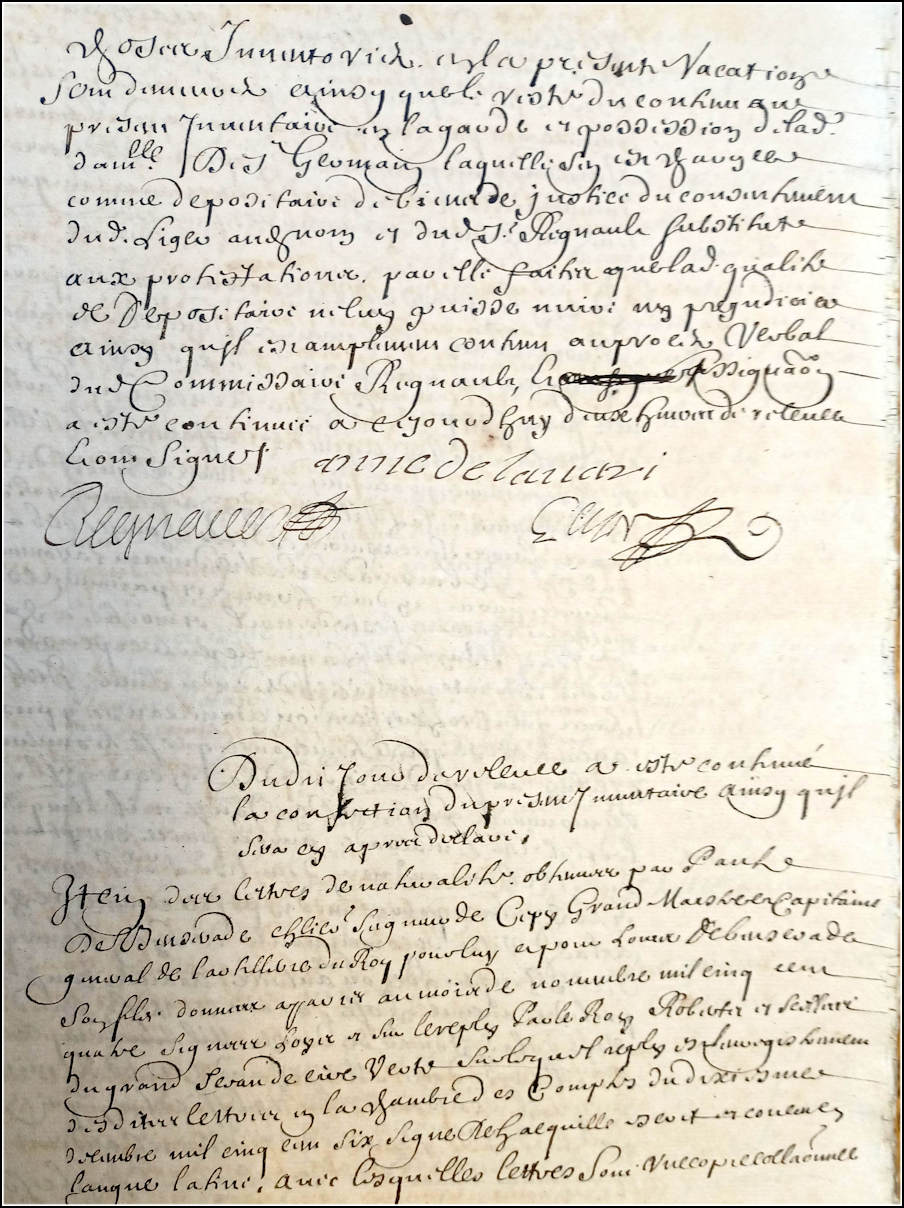 choses Inventoriées en la presente Vacation
sont demeurés ainsy que le reste du contenu au
present Inventaire en la garde et possession de lad.
dam.lle De S.t Germain laquelle sen est chargée
comme depositaire de biens de justice du consentement
dud. Liger aud nom et dud S.r Regnault substitut
aux protestations par elle faites que lad qualité
de Depositaire ne luy puisse nuire ny prejudicier
ainsy quil est amplement contenu au proces Verbal
dud Commissaire Regnault, Lassignaõn
a esté continuée a ce jourdhuy deux heures de relevée
Et ont Signez anne de lauari
Regnault
Dudit Jour de relevée a esté continué
la confection du present Inventaire ainsy quil
sera cy apres declaré,
Item des lettres de naturalité obtenues par Paul
De Benserade chlier Seigneur de Cepy Grand Maistre et Capitaine
general de lartillerie du Roy pour luy et pour Louis De benserade
son fils donnees a paris au mois de novembre mil cinq cent
quatre signees Loys et sur le reply Par le Roy Robertet et scellées
du grand Sceau de cire Verte sur lequel reply est lenregistrement
desdites lettres en la chambre des Comptes du dixiesme
decembre mil cinq cent six signe De Hacqueville escrit et conceu en
langue latine, avec lesquelles lettres sont une copie collaõnnée